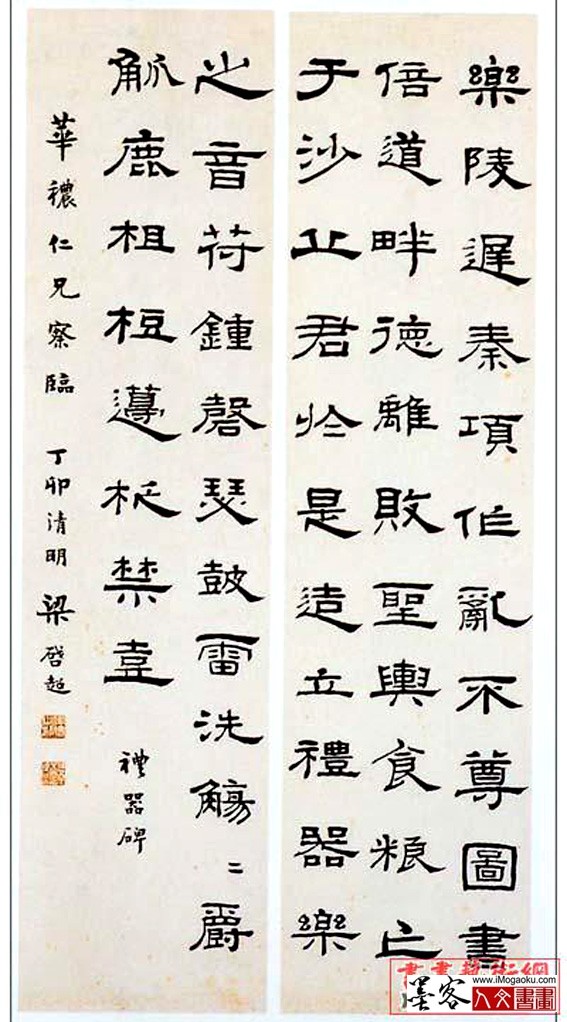 樂陵遲秦項作亂不尊圖書
倍道畔德離敗聖輿食粮亡
于沙丘君於是造立禮器樂
之音苻鍾磬瑟鼓雷洗觴二爵
觚鹿柤梪籩柉禁壺 禮器碑
華穠仁兄察臨 丁卯清明 梁啓超
墨客
www.iMogaoku.com
人文書畫